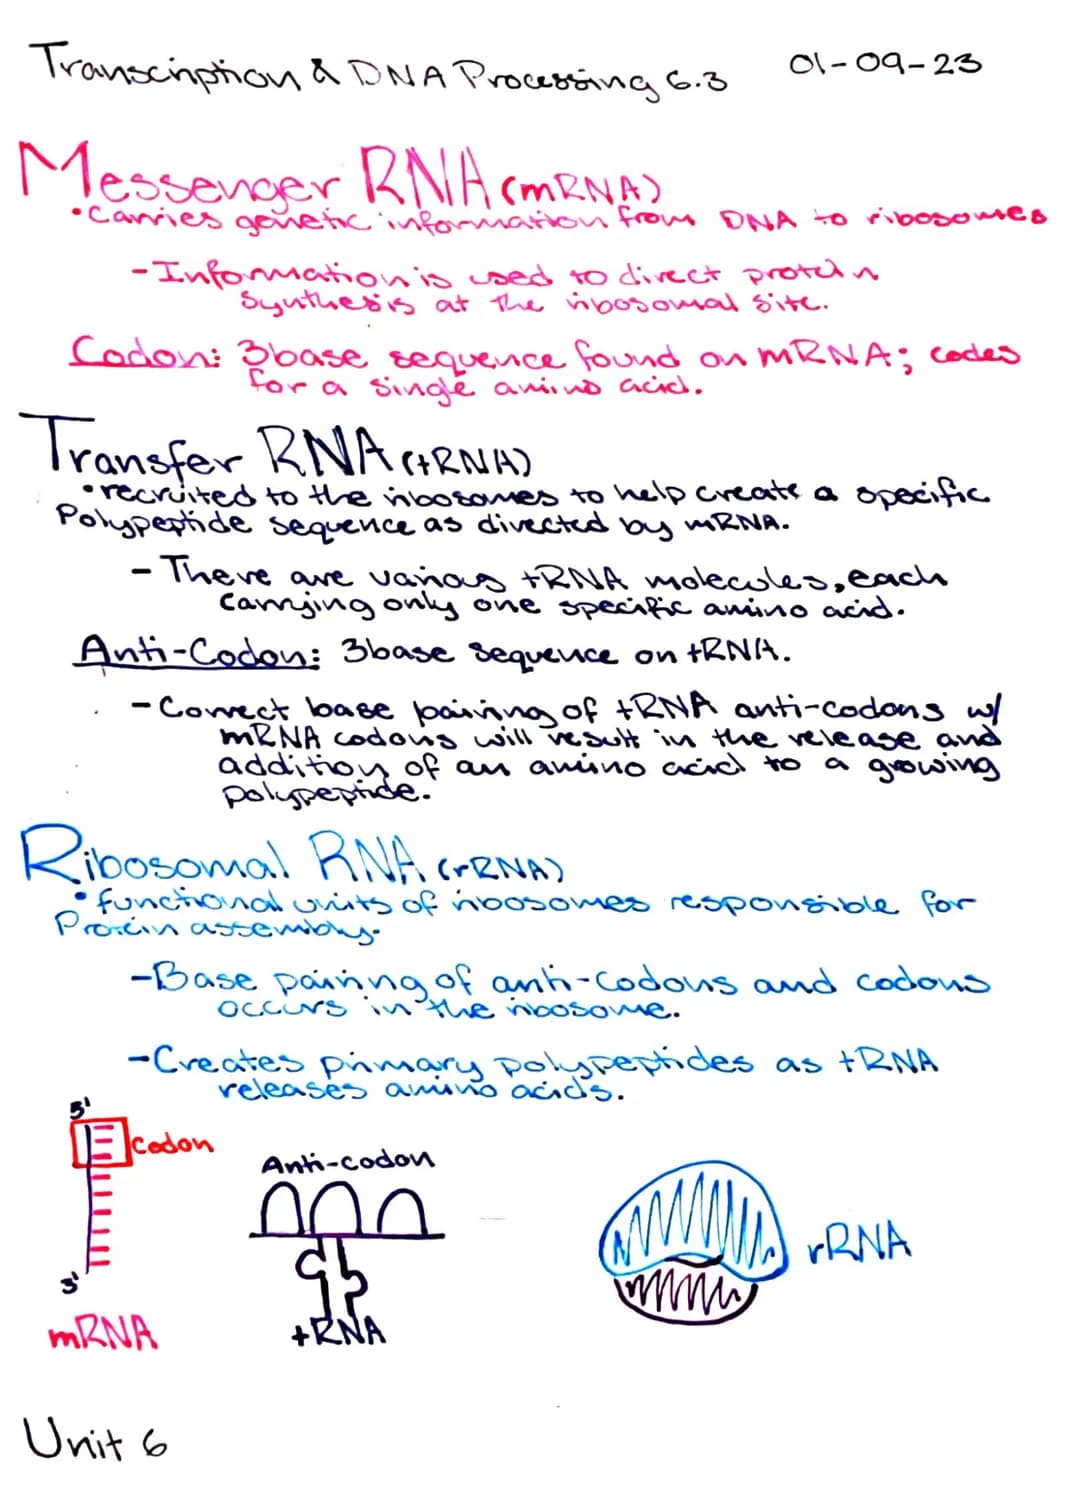 Transcription & DNA Processing 6.3 01-09-23
Messenger RNA (mRNA)
•Carries genetic information from DNA to ribosomes
-Information is used to direct protein
synthesis at the ribosomal site.
Codon: 3base sequence found on mRNA; codes
for a single amino acid.
Transfer RNA (tRNA)
•recruited to the ribosomes to help create a specific
Polypeptide sequence as directed by mRNA.
- There are various tRNA molecules, each
carrying only one specific amino acid.
Anti-Codon: 3base sequence on tRNA.
-Correct base pairing of tRNA anti-codons w/
mRNA codons will result in the release and
addition of an amino acid to a growing
polypeptide.
Ribosomal RNA (rRNA)
•functional units of ribosomes responsible for
Protein assembly.
-Base pairing of anti-codons and codons
occurs in the ribosome.
-Creates primary polypeptides as tRNA
releases amino acids.
5'
Codon
Anti-codon
rRNA
3'
mRNA
tRNA
Unit 6